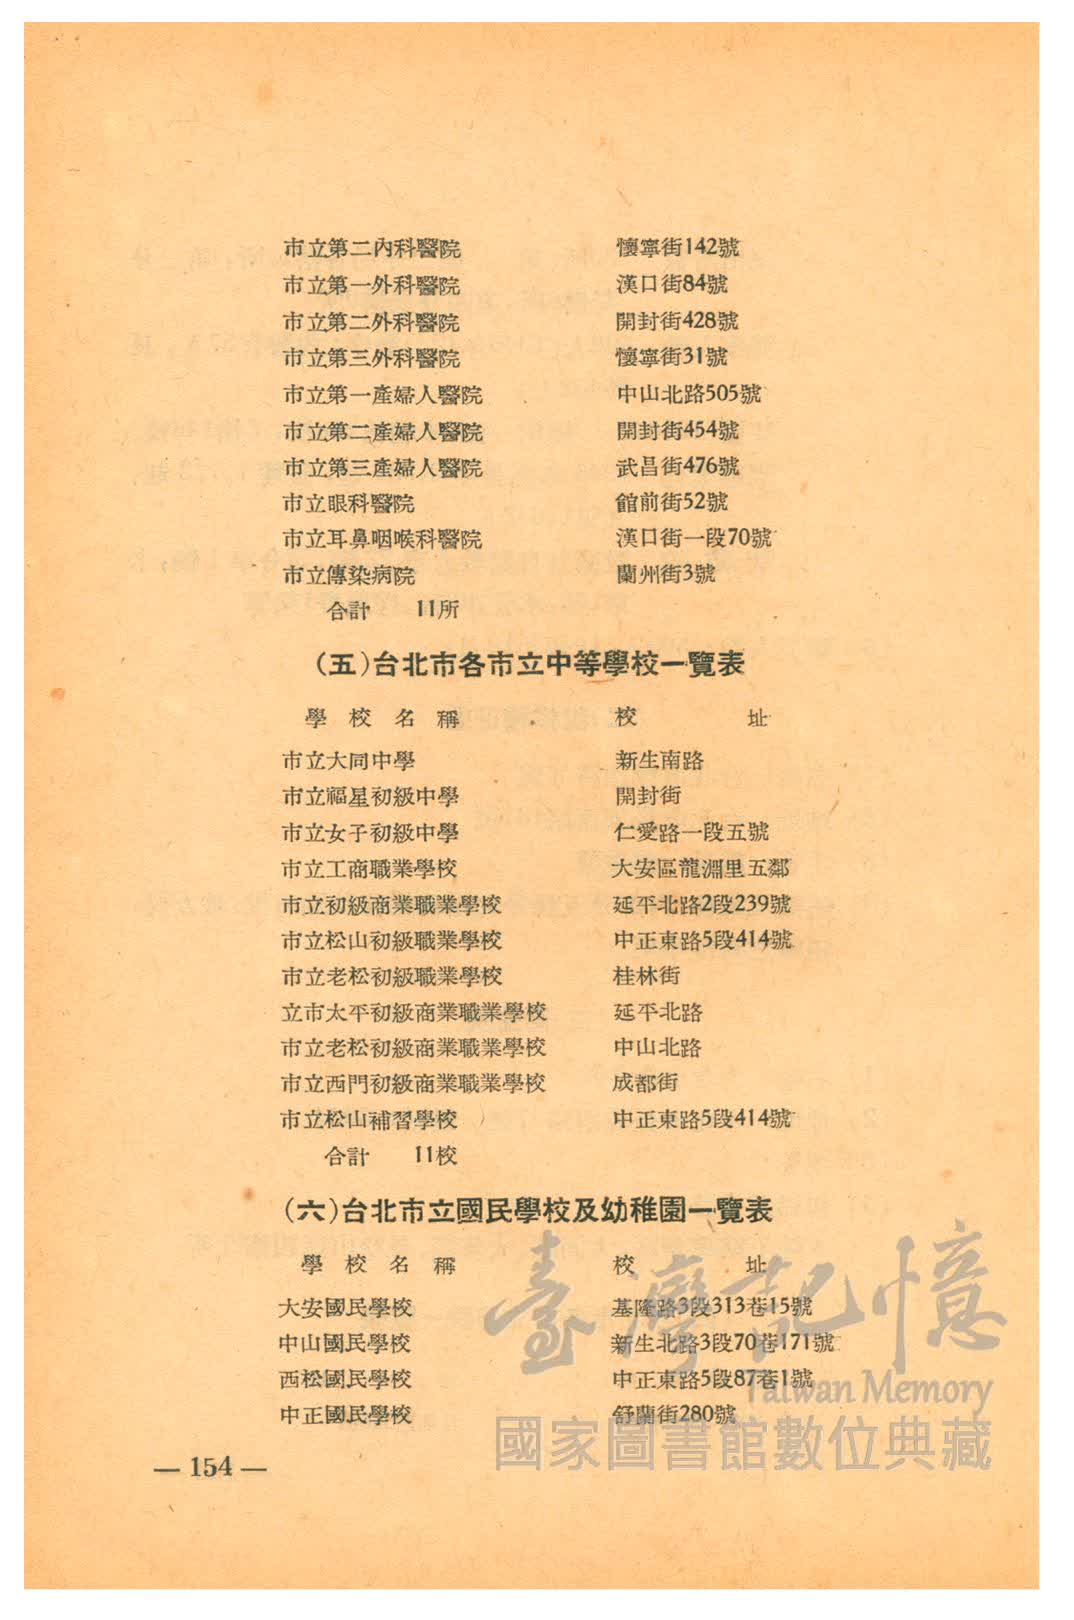 市立第二內科醫院 懷寧街142號
市立第一外科醫院 漢口街84號
市立第二外科醫院 開封街428號
市立第三外科醫院 懷寧街31號
市立第一產婦人醫院 中山北路505號
市立第二產婦人醫院 開封街454號
市立第三產婦人醫院 武昌街476號
市立眼科醫院 館前街52號
市立耳鼻咽喉科醫院 漢口街一段70號
市立傳染病院 蘭州街3號
合計 11所
(五)台北市各市立中等學校一覽表
學校名稱 校址
市立大同中學 新生南路
市立福星初級中學 開封街
市立女子初級中學 仁愛路一段五號
市立工商職業學校 大安區龍淵里五鄰
市立初級商業職業學校 延平北路2段239號
市立松山初級職業學校 中正東路5段414號
市立老松初級職業學校 桂林街
立市太平初級商業職業學校 延平北路
市立老松初級商業職業學校 中山北路
市立西門初級商業職業學校 成都街
市立松山補習學校 中正東路5段414號
合計 11校
(六)台北市立國民學校及幼稚園一覽表
學校名稱 校址
大安國民學校 基隆路3段313巷15號
中山國民學校 新生北路3段70巷171號
西松國民學校 中正東路5段87巷1號
中正國民學校 舒蘭街280號
— 154 —
臺灣記憶
Taiwan Memory
國家圖書館數位典藏